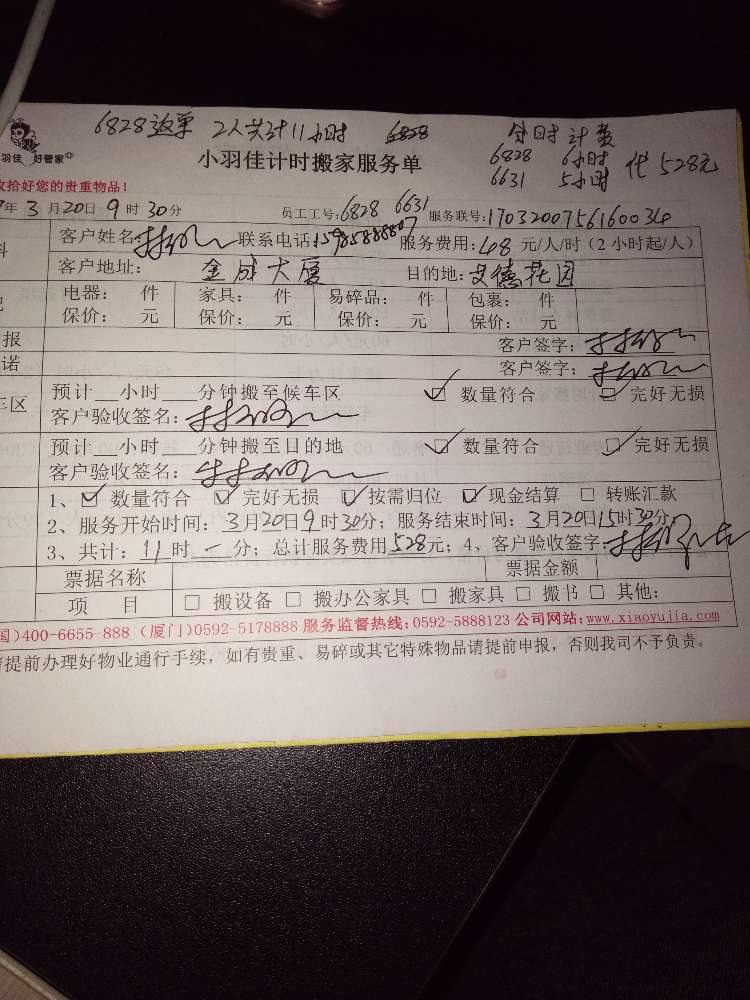 6828派单 2人共计11小时 6828 分时计费
6828 6小时
6631 5小时
代528元
小羽佳 好管家
小羽佳计时搬家服务单
收拾好您的贵重物品!
年3月20日9时30分 员工工号:6828 6631 服务联号:1703200756160034
客户姓名: 联系电话:15985888807 服务费用:48元/人/时(2小时起/人)
客户地址: 金成大厦 目的地:文德花园
电器: 件 家具: 件 易碎品: 件 包裹: 件
保价: 元 保价: 元 保价: 元 保价: 元
报 客户签字:
诺 客户签字:
车区 预计__小时___分钟搬至候车区 ☑ 数量符合 ☑ 完好无损
客户验收签名:
预计__小时___分钟搬至目的地 ☑ 数量符合 ☑ 完好无损
客户验收签名:
1、☑ 数量符合 ☑ 完好无损 ☑ 按需归位 ☑ 现金结算 □ 转账汇款
2、服务开始时间:3月20日9时30分;服务结束时间:3月20日15时30分
3、共计:11时一分;总计服务费用528元;4、客户验收签字:
票据名称 票据金额
项 目 □ 搬设备 □ 搬办公家具 □ 搬家具 □ 搬书 □ 其他:
国)400-6655-888 (厦门)0592-5178888 服务监督热线:0592-5888123 公司网站:www.xiaoyujia.com
请提前办理好物业通行手续,如有贵重、易碎或其它特殊物品请提前申报,否则我司不予负责。